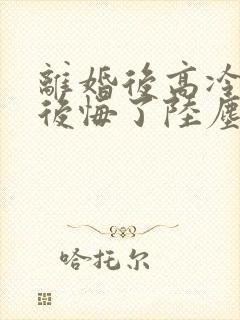 離婚後高冷
後悔了陸塵
哈托尔